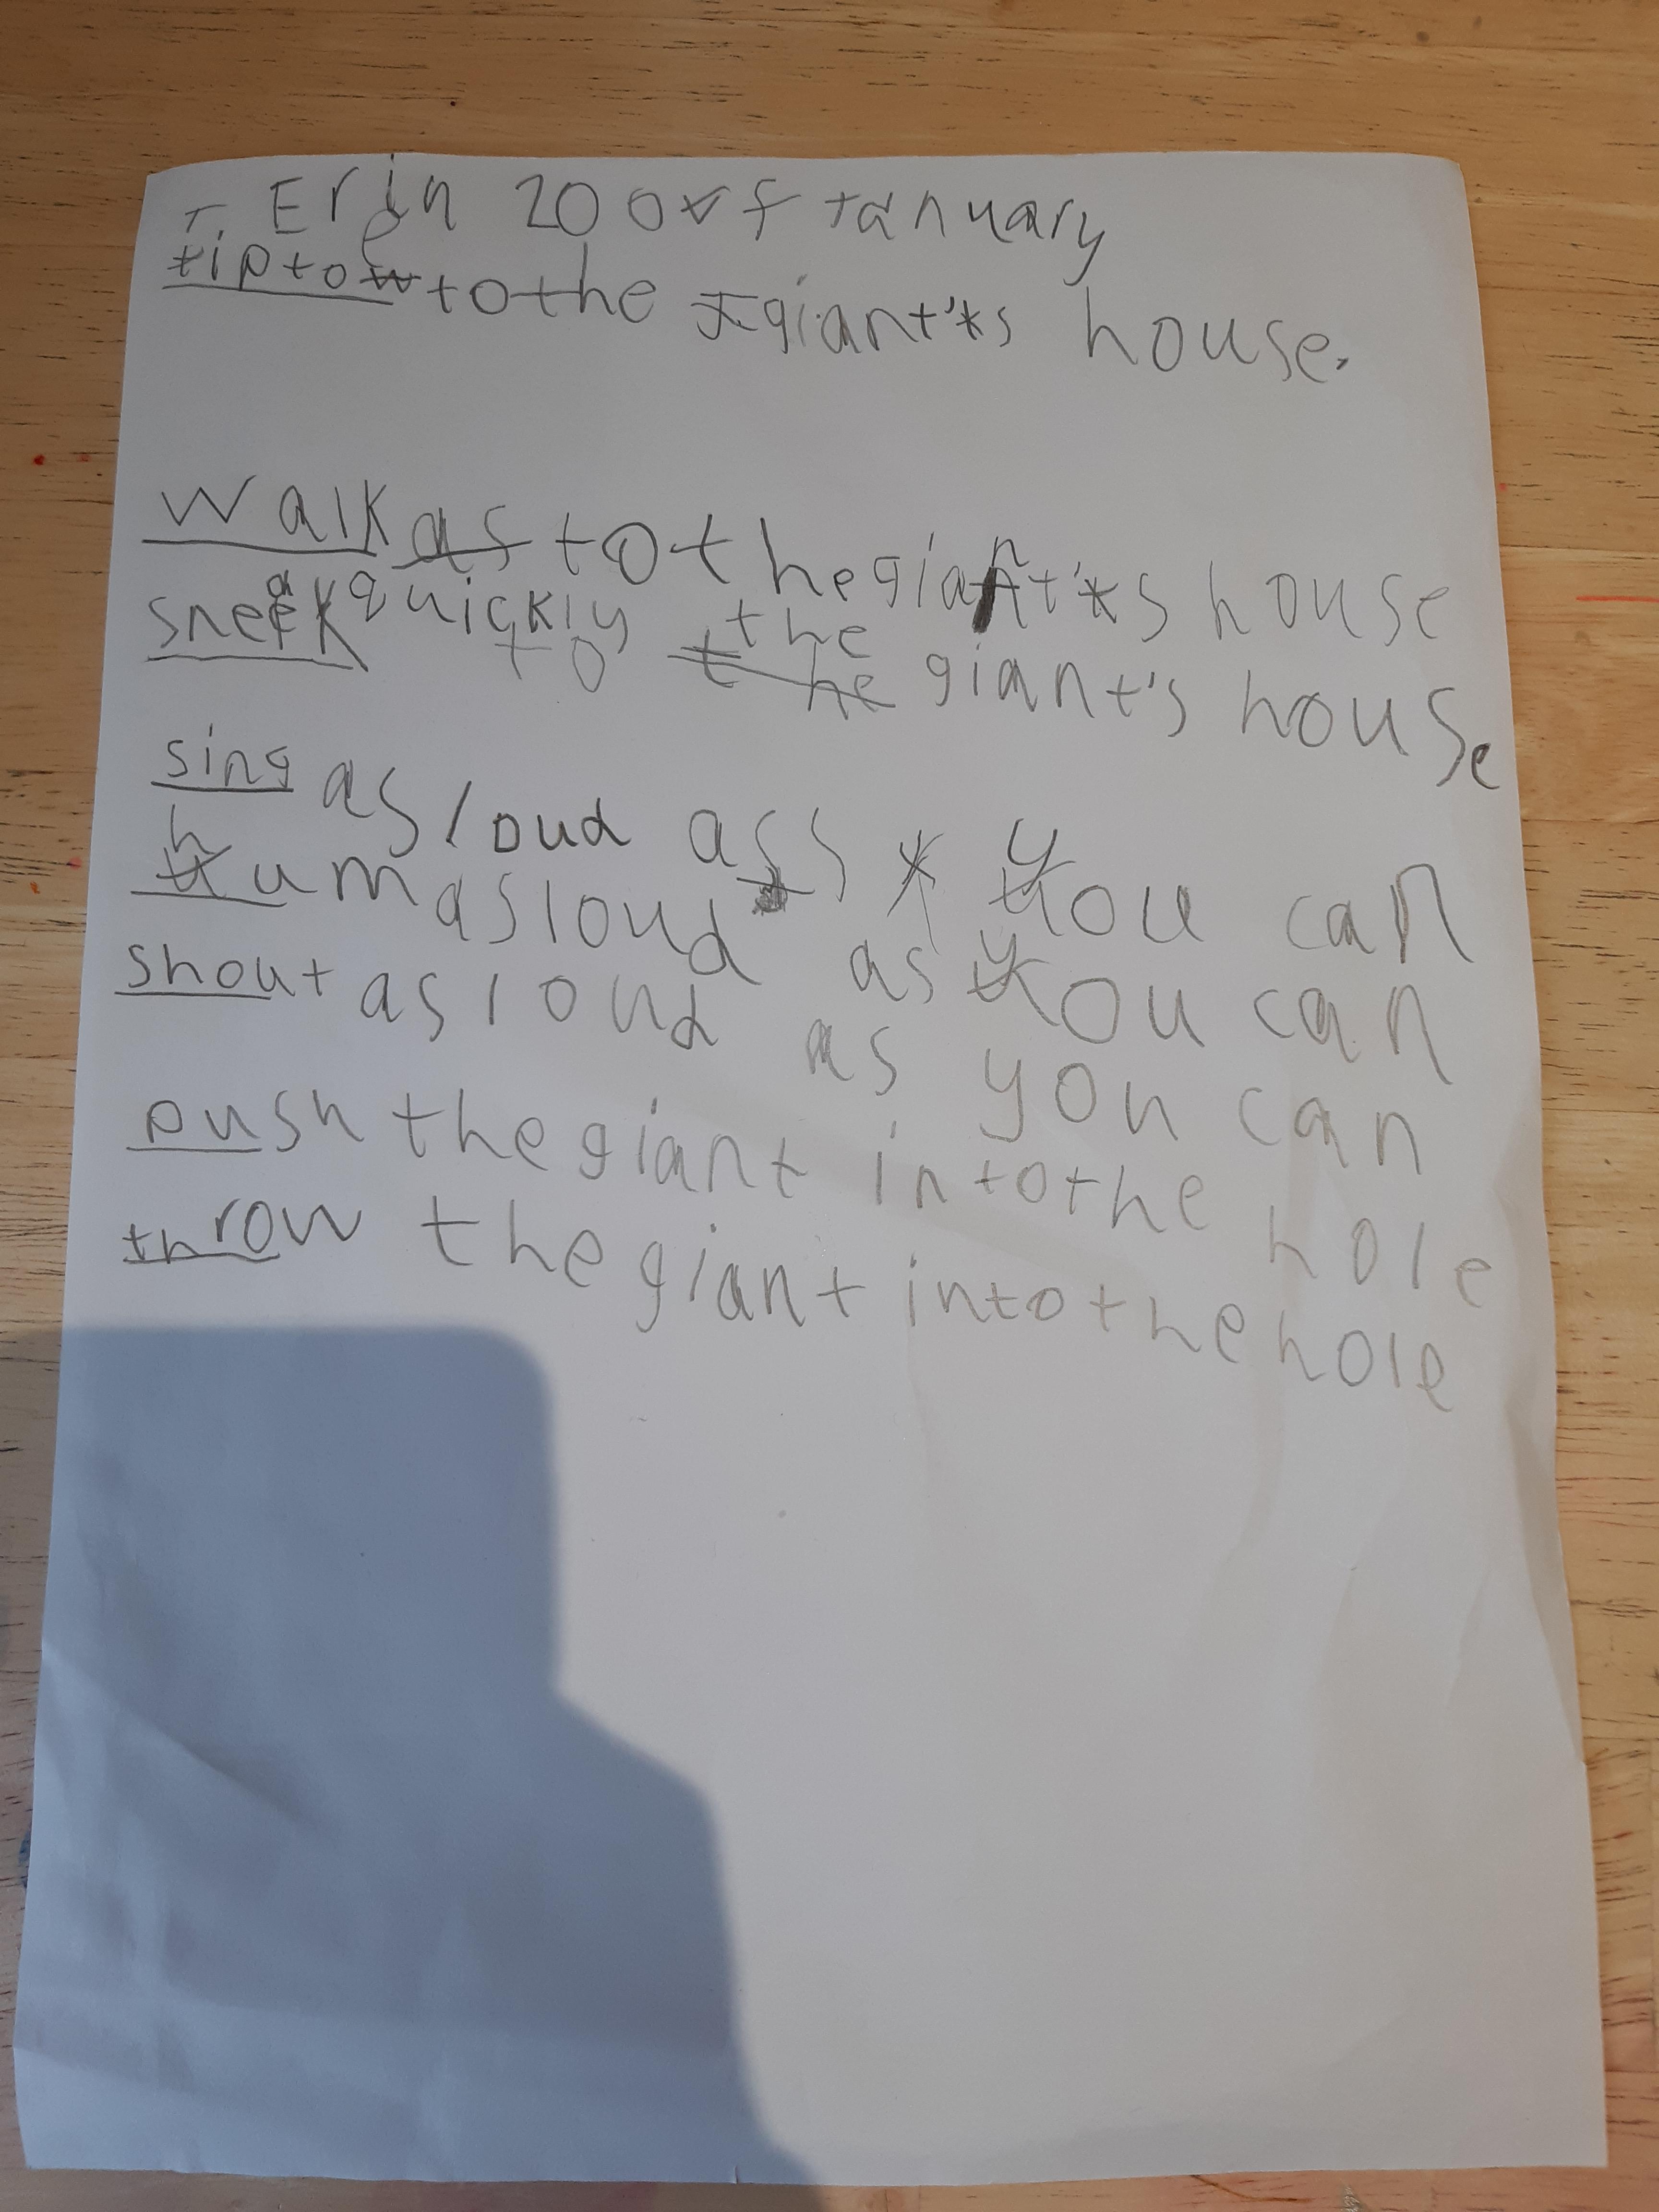 Erin 20 of January
tiptoe to the giant's house.
walk to the giant's house
sneak quickly to the giant's house
sing as loud as you can
hum as loud as you can
shout as loud as you can
push the giant into the hole
throw the giant into the hole